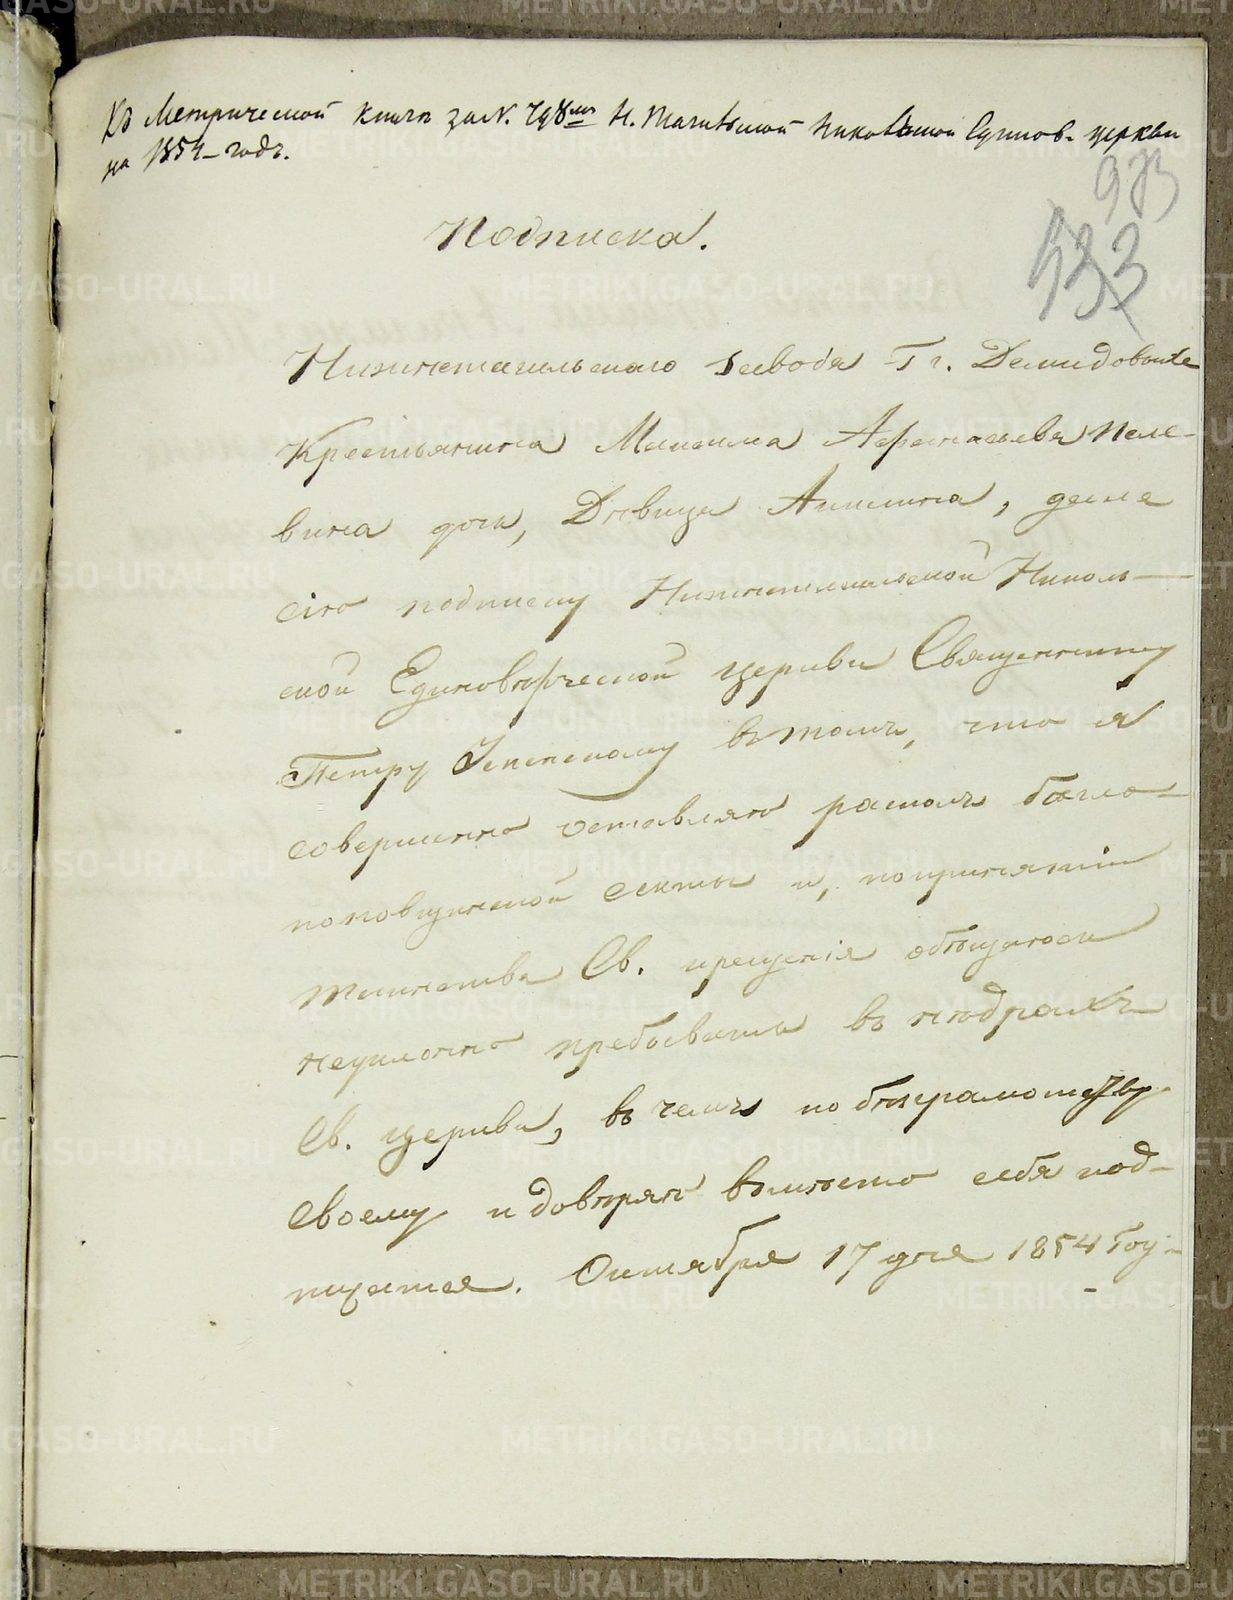 Къ Метрической книгѣ за N. 798мъ Н. Тагильской Никольской Единов. церкви
на 1854 годъ.
973
533
Подписка.
Нижнетагильскаго Завода Гг. Демидовыхъ
Крестьянина Максима Афанасьева Пеле-
вина дочь, Дѣвица Акилина, дала
сію подписку Нижнетагильской Николь-
ской Единовѣрческой церкви Священнику
Петру Успенскому въ томъ, что я
совершенно оставляю расколъ безпо-
повщинской секты и, по принятіи
таинства Св. крещенія обѣщаюсь
неуклонно пребывать въ нѣдрахъ
Св. церкви, въ чемъ по безграмотству
своему и довѣряю вмѣсто себя под-
писаться. Октября 17 дня 1854 году.
METRIKI.GASO-URAL.RU